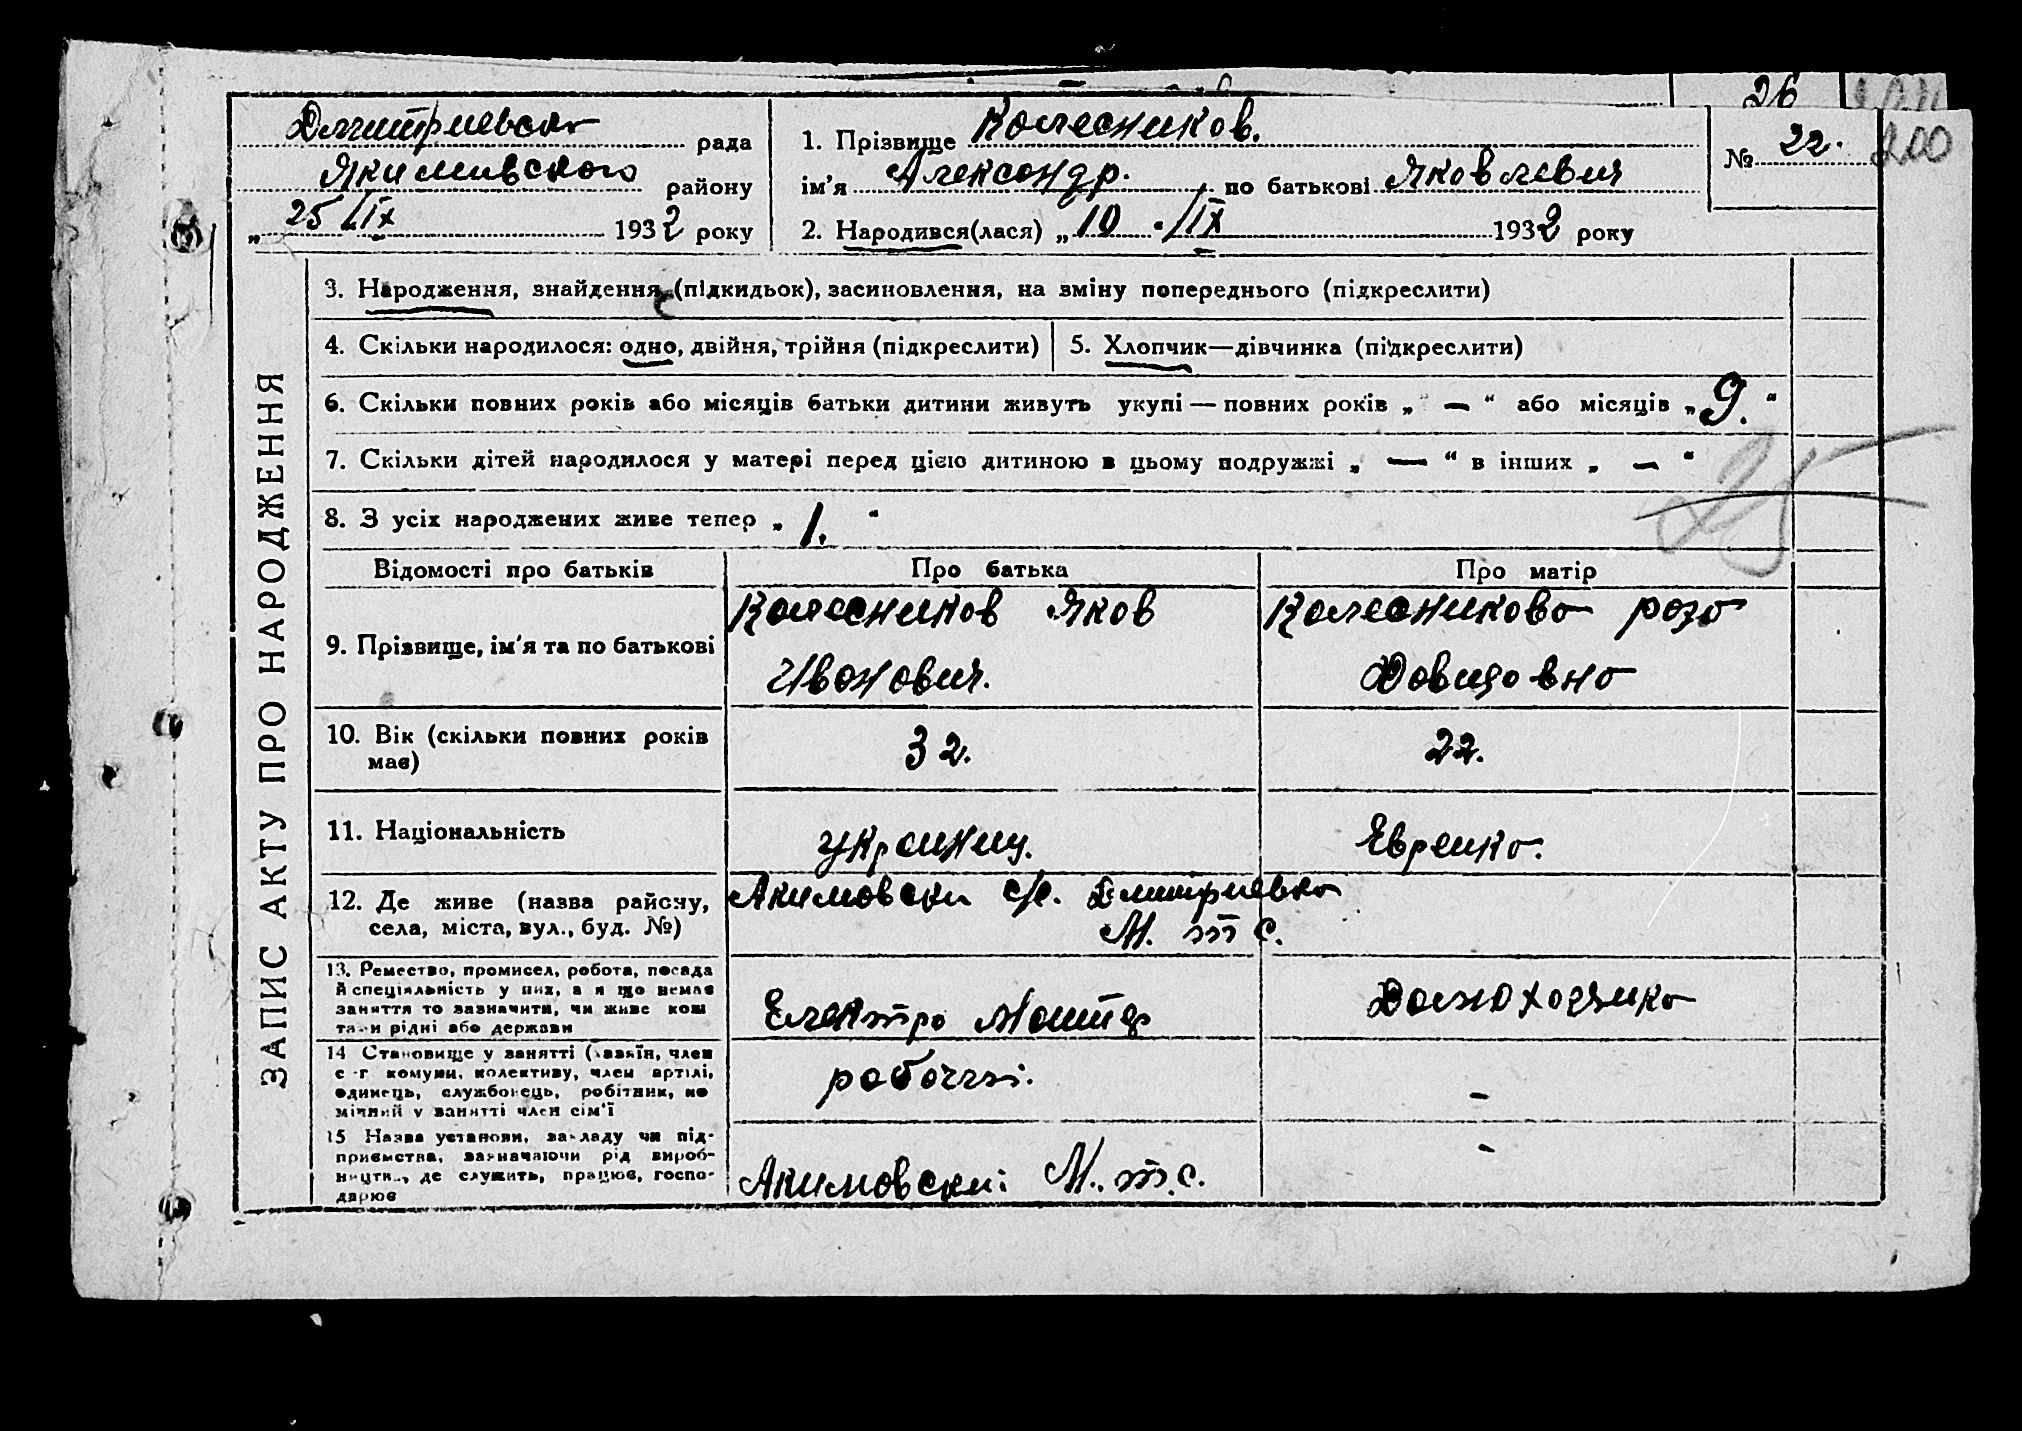 26
Дмитриевска рада
Якимивского району
„ 25/IX 1932 року
1. Прізвище Колесников.
ім'я Александр. по батькові Яковлевич
2. Народився(лася) „ 10 . IX 1932 року
№ 22. 200
ЗАПИС АКТУ ПРО НАРОДЖЕННЯ
3. Народження, знайдення (підкидьок), засиновлення, на зміну попереднього (підкреслити)
4. Скільки народилося: одно, двійня, трійня (підкреслити)
5. Хлопчик—дівчинка (підкреслити)
6. Скільки повних років або місяців батьки дитини живуть укупі — повних років „ — “ або місяців „ 9. “
7. Скільки дітей народилося у матері перед цією дитиною в цьому подружжі „ — “ в інших „ — “
25
8. З усіх народжених живе тепер „ 1. “
Відомості про батьків
Про батька
Про матір
9. Прізвище, ім'я та по батькові
Колесников Яков
Иванович.
Колесникова роза
Давидовна
10. Вік (скільки повних років
має)
32.
22.
11. Національність
украинец.
Еврейка.
12. Де живе (назва району,
села, міста, вул., буд. №)
Акимовски с/с. Дмитриевка
М. т с.
13. Ремество, промисел, робота, посада
й спеціяльність у них, а я що немає
заняття то зазначити, чи живе кош
тами рідні або держави
Електро Монтер
Домохозяйка
14 Становище у занятті (хазяїн, член
с -г комуни, колективу, член артілі,
одинець, службовець, робітник, по
мічний у занятті член сім'ї
рабочий.
-
15 Назва установи, закладу чи під-
приємства, зазначаючи рід вироб-
ництва, де служить, працює, госпо-
дарює
Акимовский М. т. с.
-